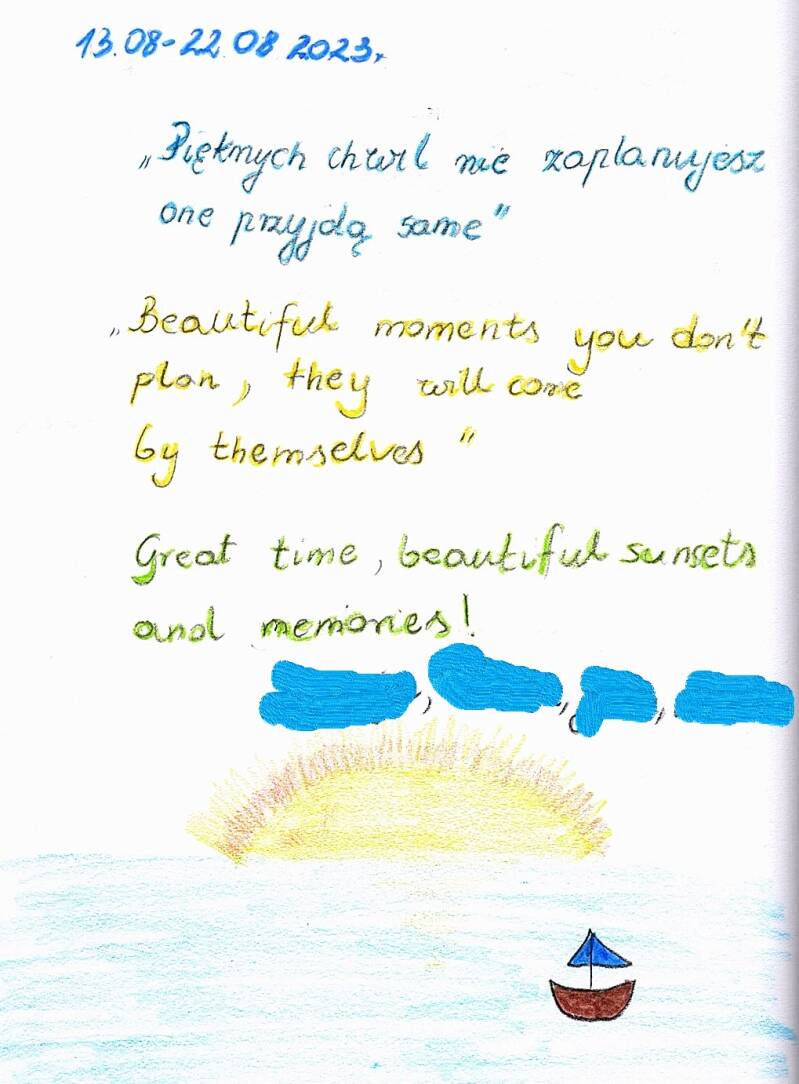 13.08-22.08 2023r.
„Pięknych chwil nie zaplanujesz
one przyjdą same"
„Beautiful moments you don't
plan, they will come
by themselves"
Great time, beautiful sunsets
and memories!